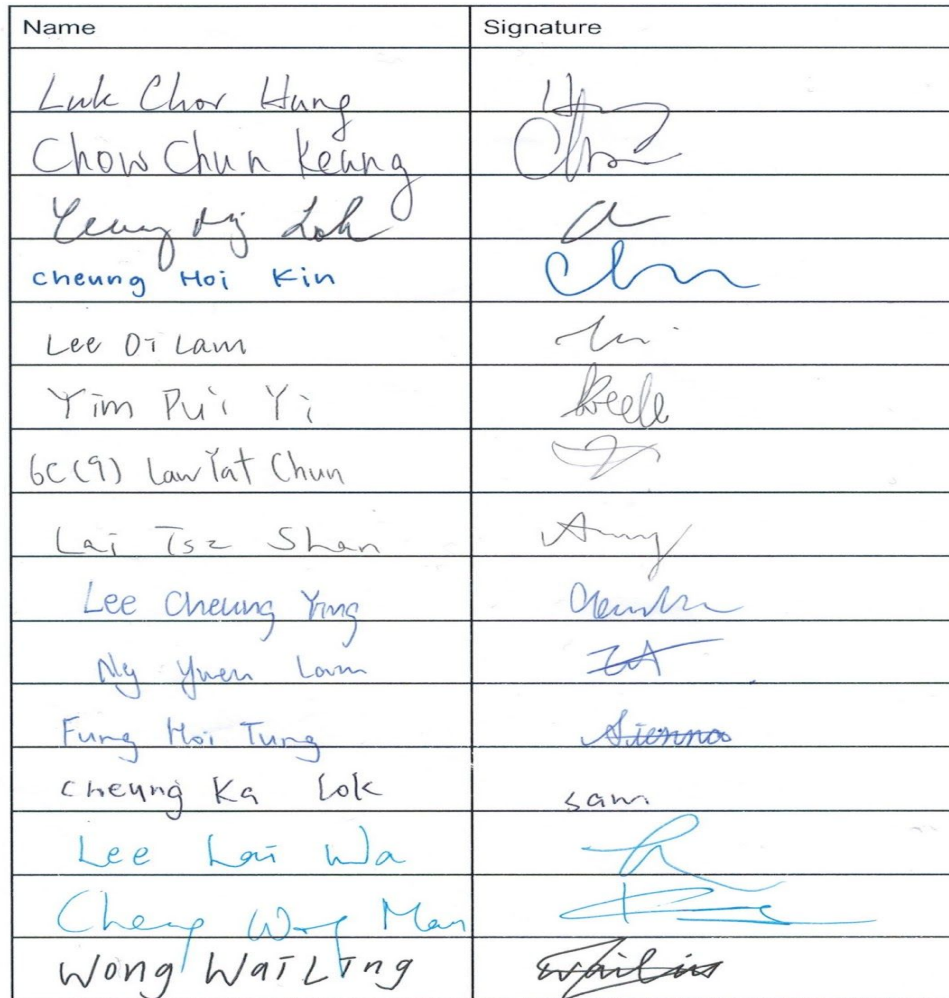 Name Signature
Luk Chor Hung
Chow Chun Keung Chow
Yeung Lok
Cheung Hoi Kin
Lee Oi Lam
Yim Pui Yi
6C(9) Law Yat Chun
Lai Tsz Shan Amy
Lee Cheung Ying
Ng Yuen Lam
Fung Hoi Tung Sienna
cheung Ka Lok sam
Lee Lai Wa
Cheng Wing Man
Wong Wai Ling Wailing